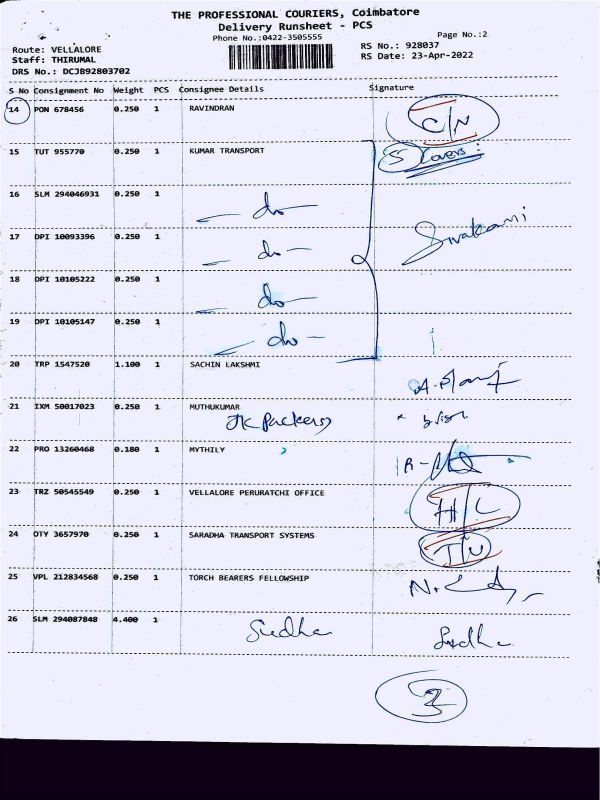 THE PROFESSIONAL COURIERS, Coimbatore
Delivery Runsheet - PCS
Phone No.:0422-3505555
Page No.:2
Route: VELLALORE
RS No.: 928037
Staff: THIRUMAL
RS Date: 23-Apr-2022
DRS No.: DCJB92803702
S No Consignment No Weight PCS Consignee Details Signature
14 PON 678456 0.250 1 RAVINDRAN C/N
15 TUT 955770 0.250 1 KUMAR TRANSPORT 5 Covers:
16 SLM 294046931 0.250 1 — do —
17 DPI 10093396 0.250 1 — do — Sivakami
18 DPI 10105222 0.250 1 — do
19 DPI 10105147 0.250 1 — do —
20 TRP 1547520 1.100 1 SACHIN LAKSHMI
21 IXM 50017023 0.250 1 MUTHUKUMAR
JK Packers
22 PRO 13260468 0.180 1 MYTHILY
23 TRZ 50545549 0.250 1 VELLALORE PERURATCHI OFFICE H/L
24 OTY 3657970 0.250 1 SARADHA TRANSPORT SYSTEMS
25 VPL 212834568 0.250 1 TORCH BEARERS FELLOWSHIP
26 SLM 294087848 4.400 1 Sudha Sudha
3